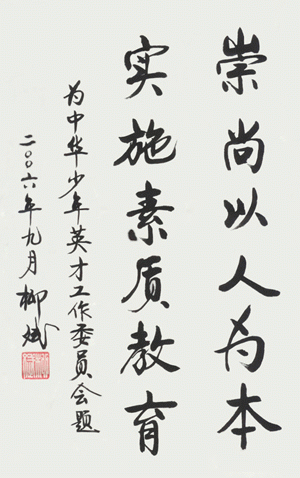 崇尚以人为本
实施素质教育
为中华少年英才工作委员会题
二〇〇六年九月 柳斌